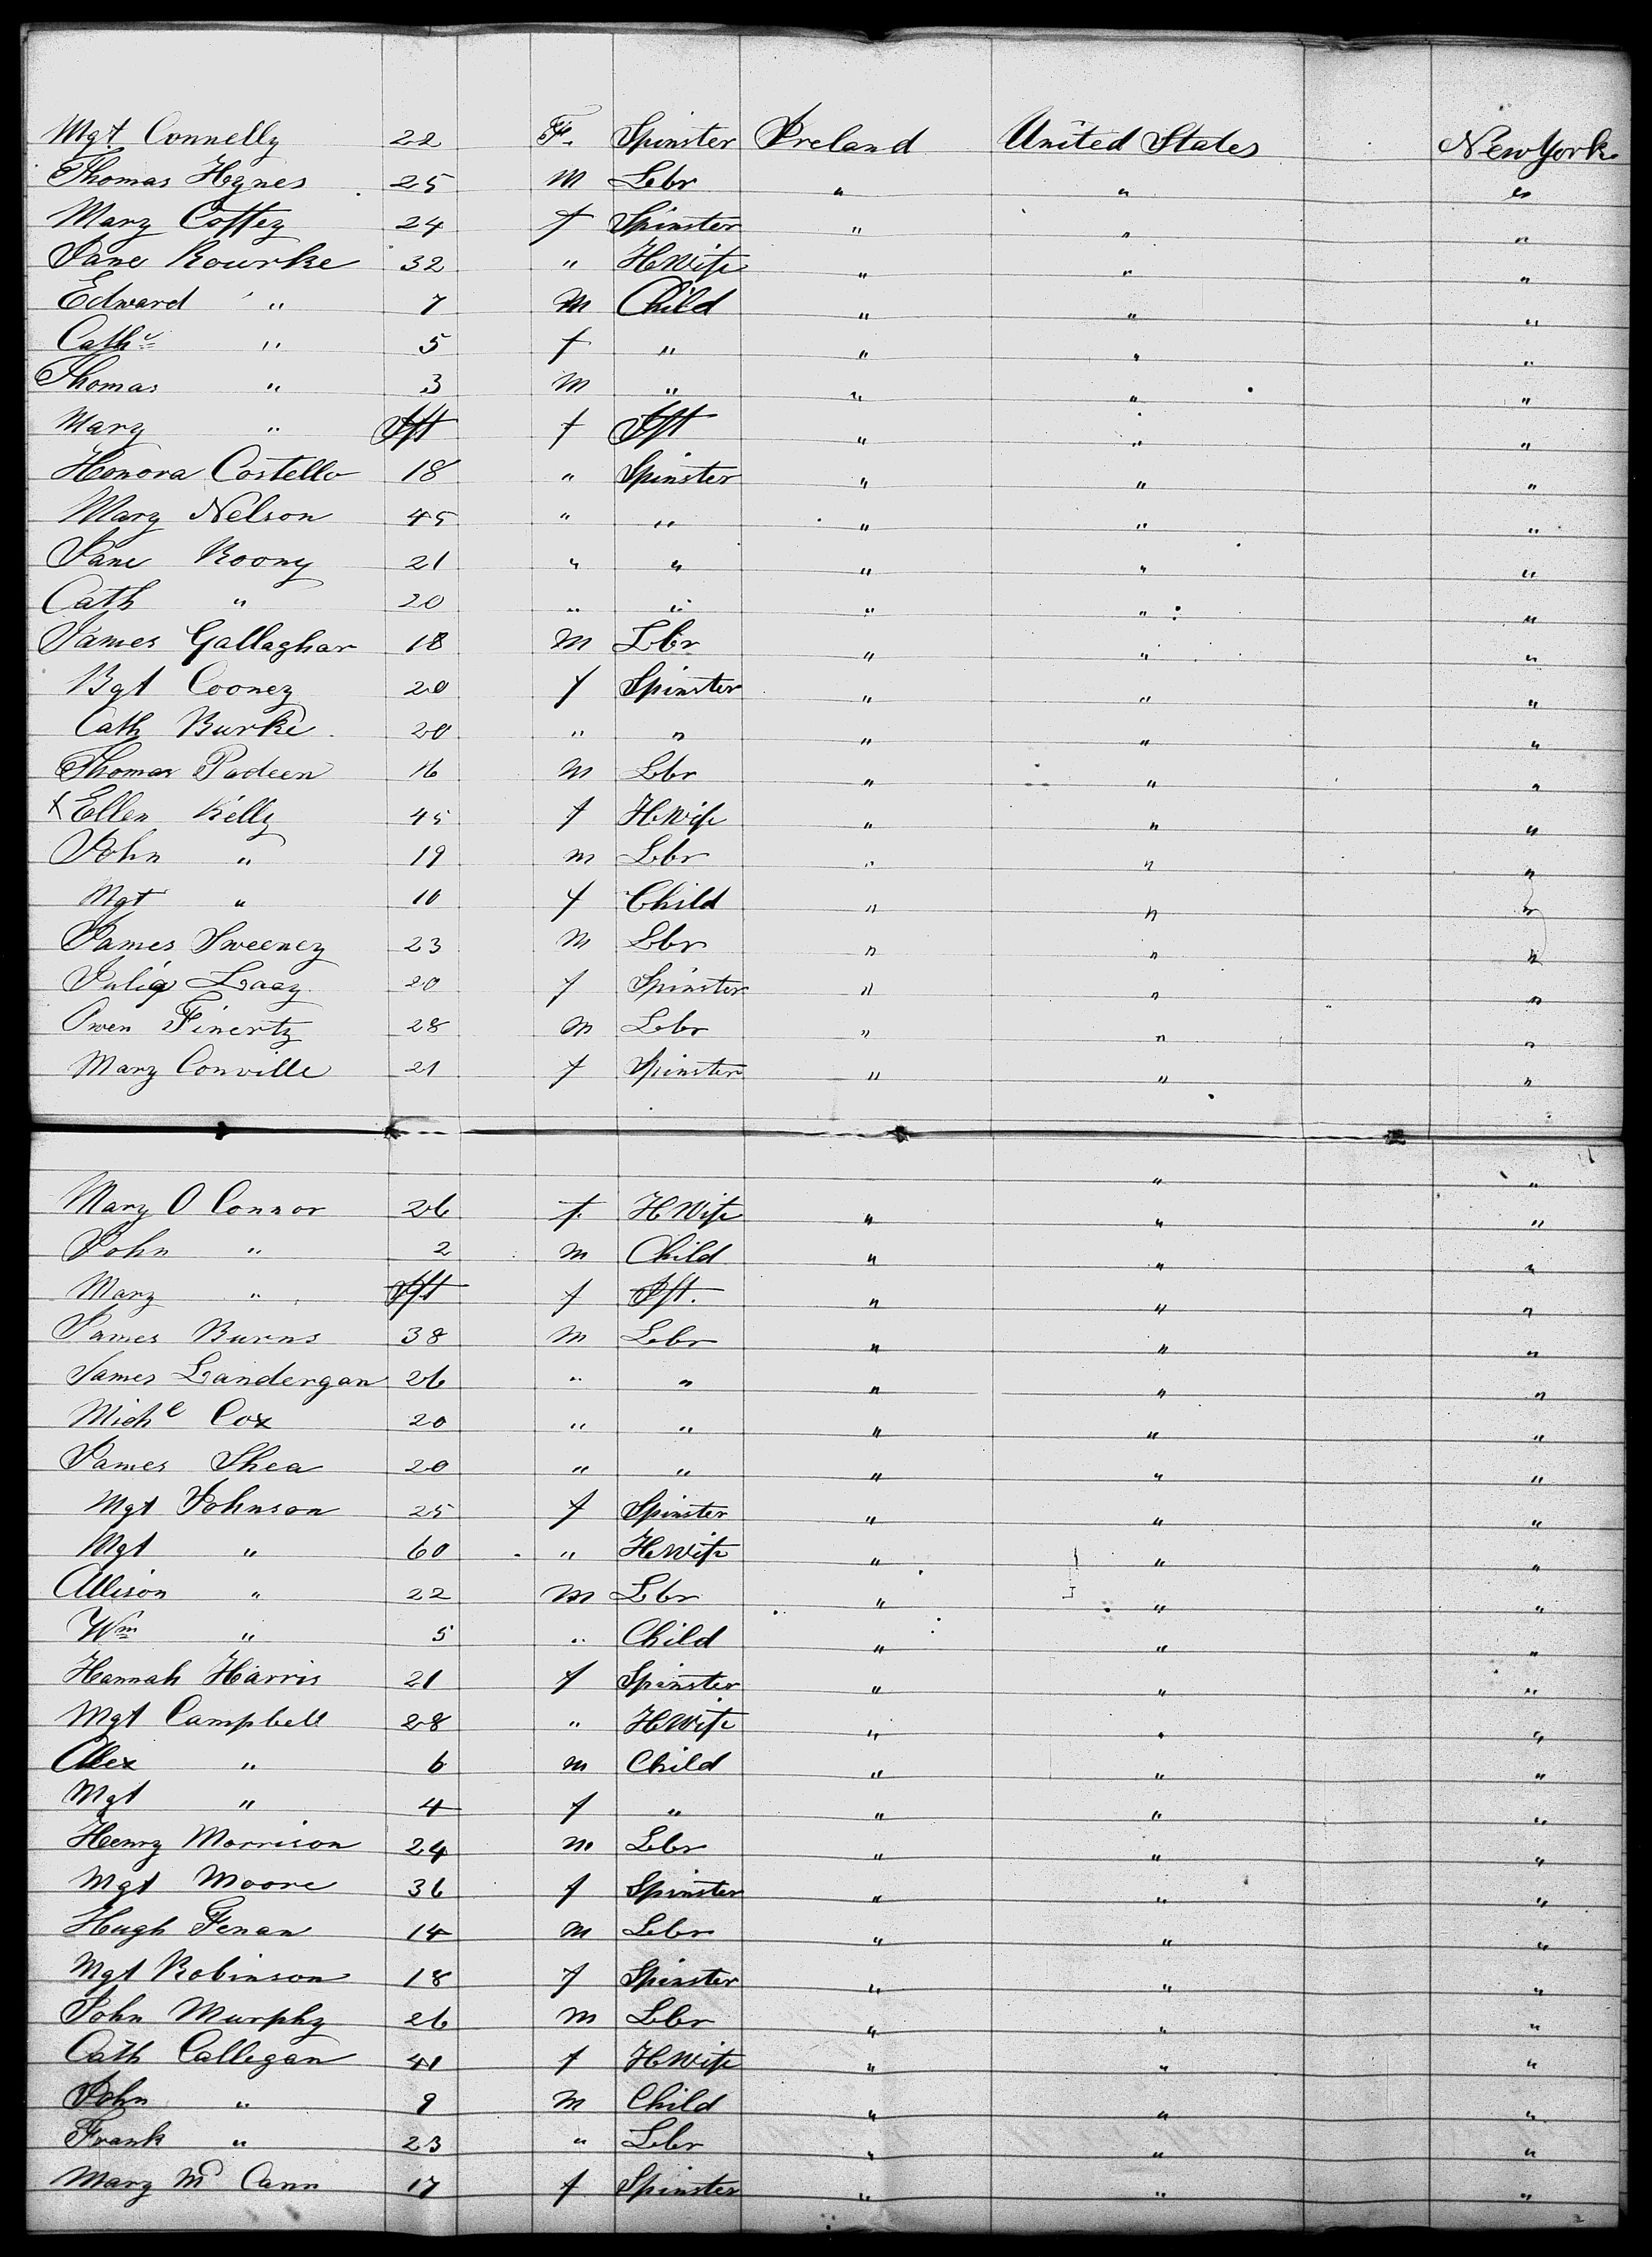 Mgt Connelly 22 F. Spinster Ireland United States New York
Thomas Hynes 25 M Lbr " " "
Mary Coffey 24 f Spinster " " "
Jane Rourke 32 " HWife " " "
Edward " 7 M Child " " "
Cathe " 5 f " " " "
Thomas " 3 M " " " "
Mary " Ift f Ift " " "
Honora Costello 18 " Spinster " " "
Mary Nelson 45 " " " " "
Jane Roony 21 " " " " "
Cath " 20 " " " " "
James Gallaghar 18 M Lbr " " "
Bgt Cooney 20 f Spinster " " "
Cath Burke 20 " " " " "
Thomas Padeen 16 M Lbr " " "
x Ellen Kelly 45 f HWife " " "
John " 19 m Lbr " " "
Mgt " 10 f Child " " "
James Sweeney 23 M Lbr " " "
Julia 20 f Spinster " " "
Owen Finerty 28 m Lbr " " "
Mary Conville 21 f Spinster " " "
" "
Mary O Connor 26 f. HWife " " "
John " 2 m Child " " "
Mary " Ift f Ift. " " "
James Burns 38 M Lbr " " "
James Landergan 26 " " " " "
Michl Cox 20 " " " " "
James Shea 20 " " " " "
Mgt Johnson 25 f Spinster " " "
Mgt " 60 " HWife " " "
Allison " 22 M Lbr " " "
Wm " 5 " Child " " "
Hannah Harris 21 f Spinster " " "
Mgt Campbell 28 " HWife " " "
Alex " 6 m Child " " "
Mgt " 4 f " " " "
Henry Morrison 24 m Lbr " " "
Mgt Moore 36 f Spinster " " "
Hugh Fenan 14 m Lbr " " "
Mgt Robinson 18 f Spinster " " "
John Murphy 26 M Lbr " " "
Cath Callegan 41 f HWife " " "
John " 9 M Child " " "
Frank " 23 " Lbr " " "
Mary Mc Cann 17 f Spinster " " "